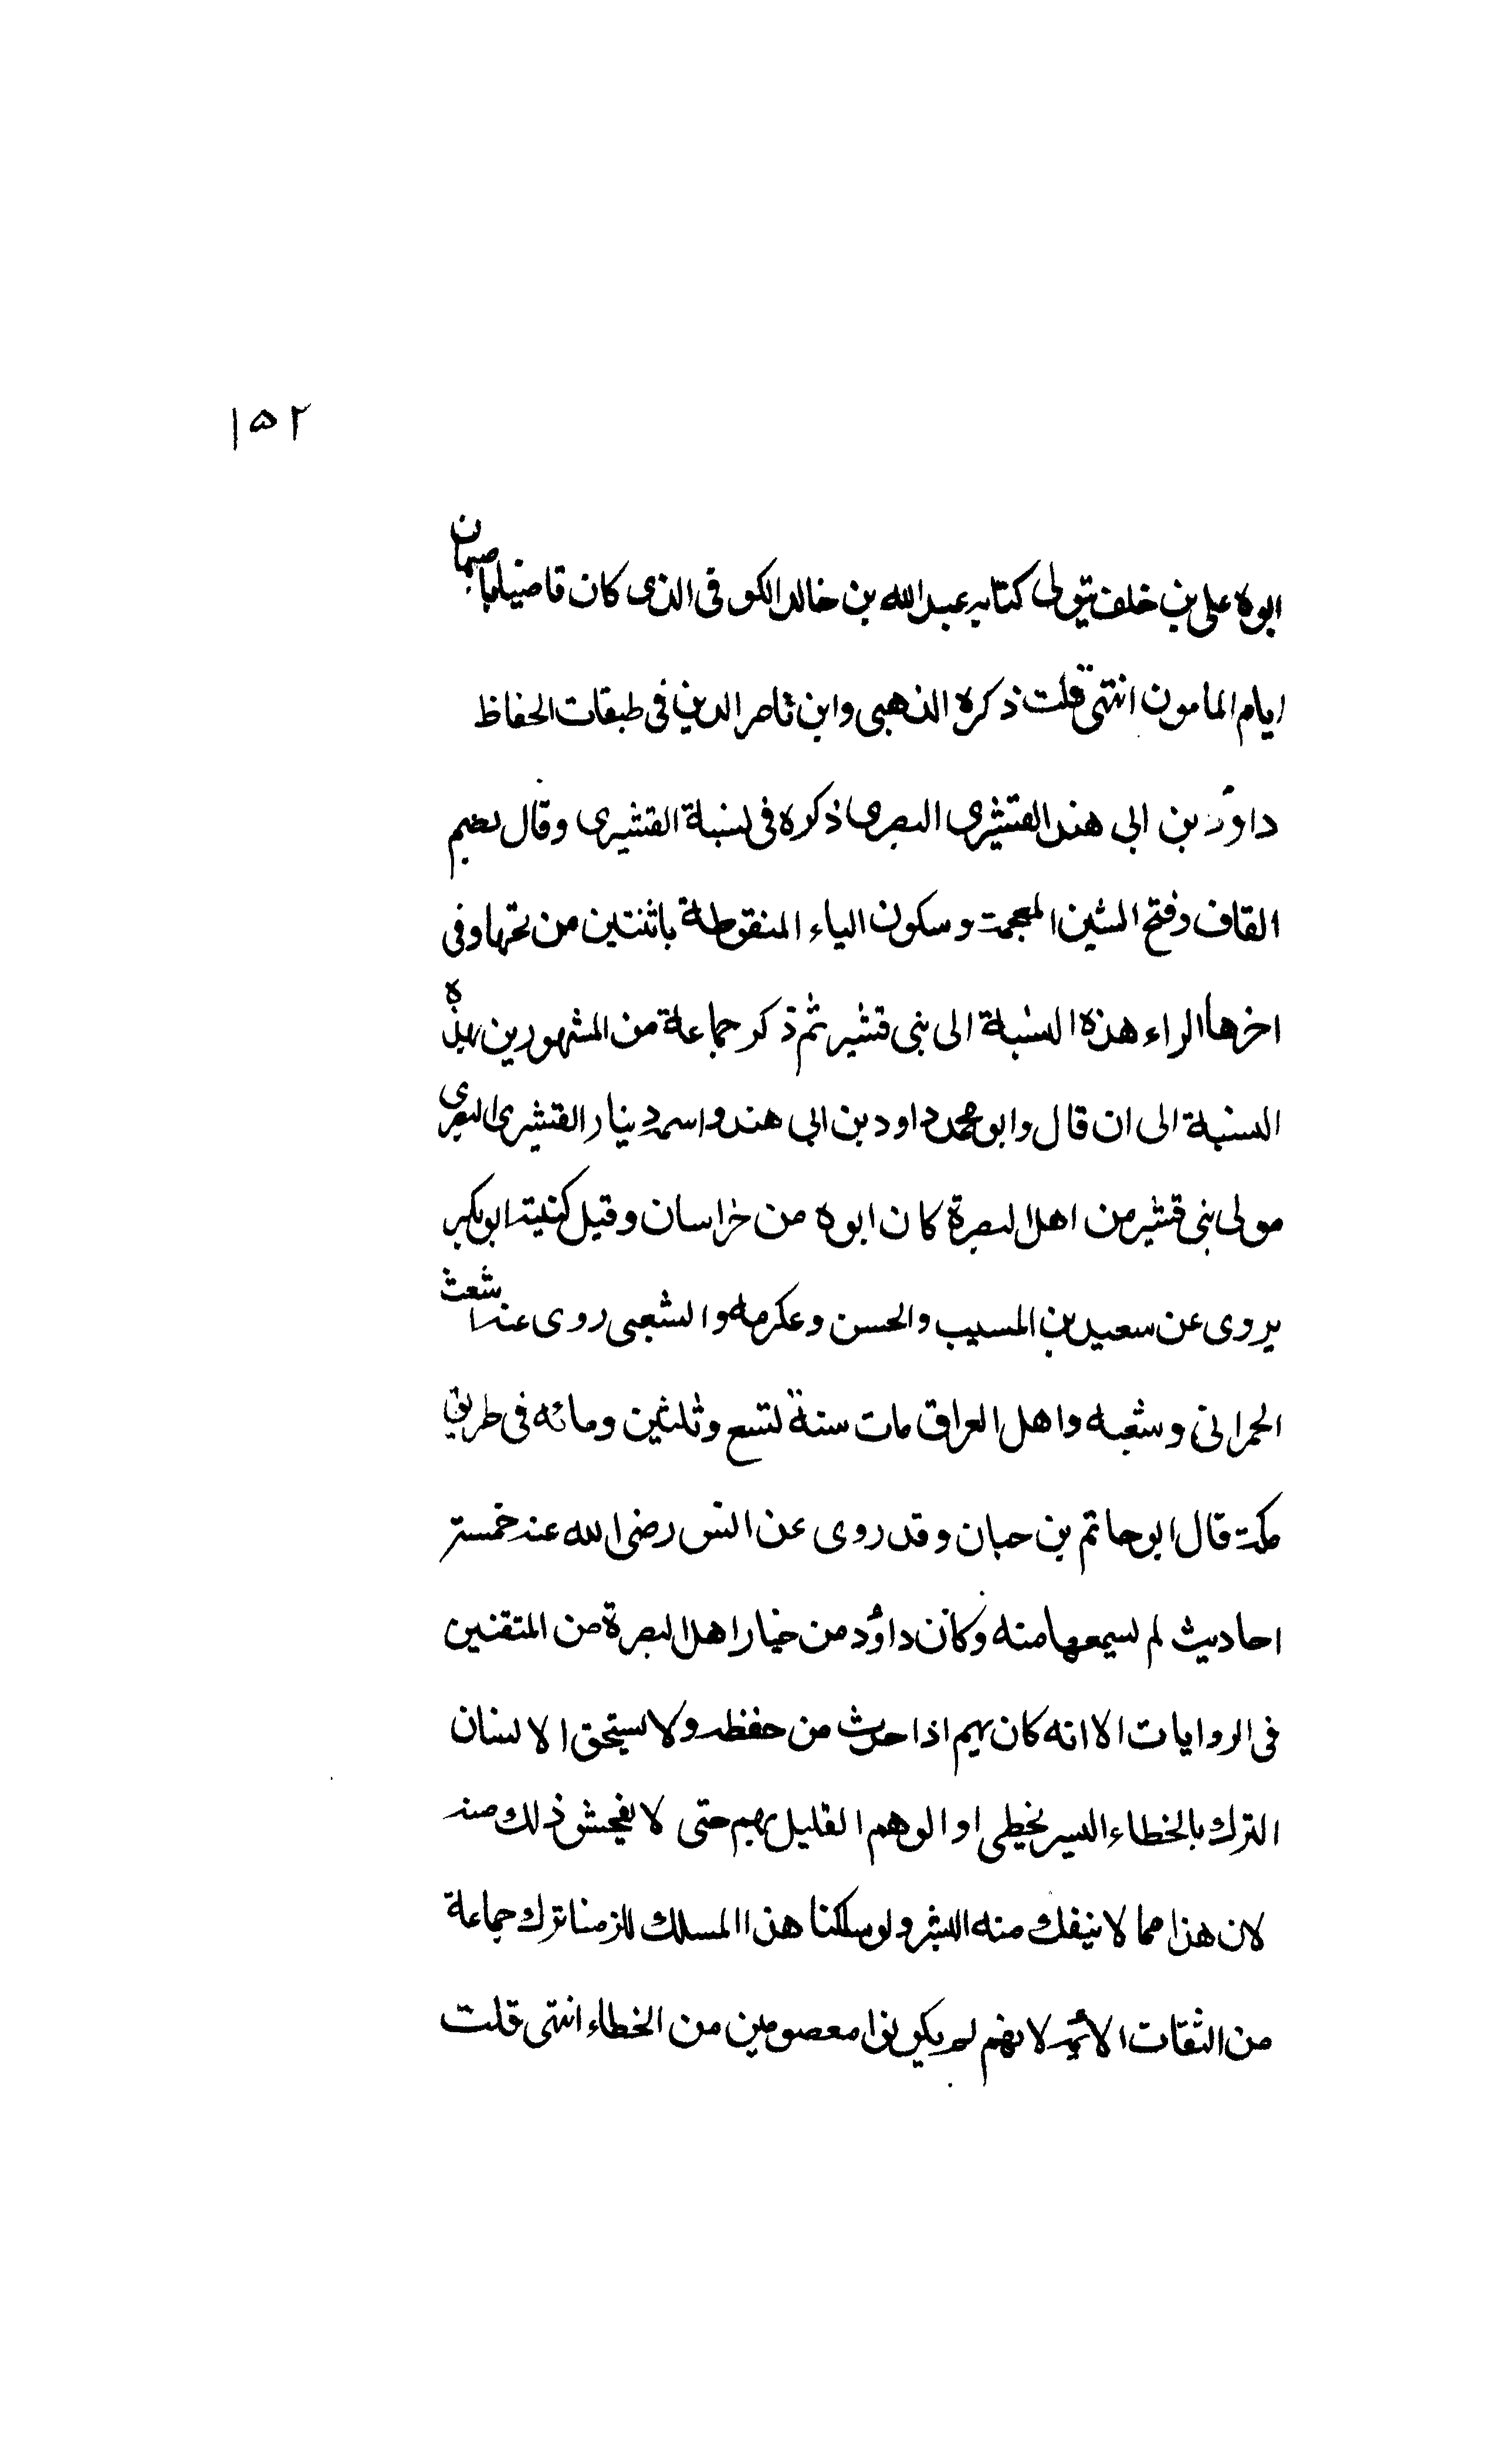 ١٥٢
ابوه علی بن خلف یتولی کتابه عبد الله بن خالد الکوفی الذی کان قاضیا باصبهان
ایام المامون انتهی قلت ذکره الذهبی وابن ناصر الدین فی طبقات الحفاظ
داؤد بن ابی هند القشیری البصری ذکره فی نسبة القشیری وقال بضم
القاف وفتح الشین المعجمة وسکون الیاء المنقوطة باثنتین من تحتها وفی
اخرها الراء هذه النسبة الی بنی قشیر ثم ذکر جماعة من المشهورین بهذه
النسبة الی ان قال وابو محمد داود بن ابی هند واسمه دینار القشیری البصری
مولی بنی قشیر من اهل البصرة کان ابوه من خراسان وقیل کنیته ابو بکر
یروی عن سعید بن المسیب والحسن وعکرمه والشعبی روی عنه اشعث
الحمرانی وشعبه واهل العراق مات سنة تسع وثلثین ومائه فی طریق
مکة قال ابو حاتم بن حبان وقد روی عن انس رضی الله عنه خمسة
احادیث لم یسمعها منه وکان داؤد من خیار اهل البصرة من المتقنین
فی الروایات الا انه کان یهم اذا حدث من حفظه ولا یستحق الانسان
الترک بالخطاء الیسیر یخطی او الوهم القلیل یهم حتی لا یفحش ذلک منه
لان هذا مما لا ینفک منه البشر ولو سلکنا هذا المسلک للزمنا ترک جماعة
من الثقات الائمة لانهم لم یکونوا معصومین من الخطاء انتهی قلت